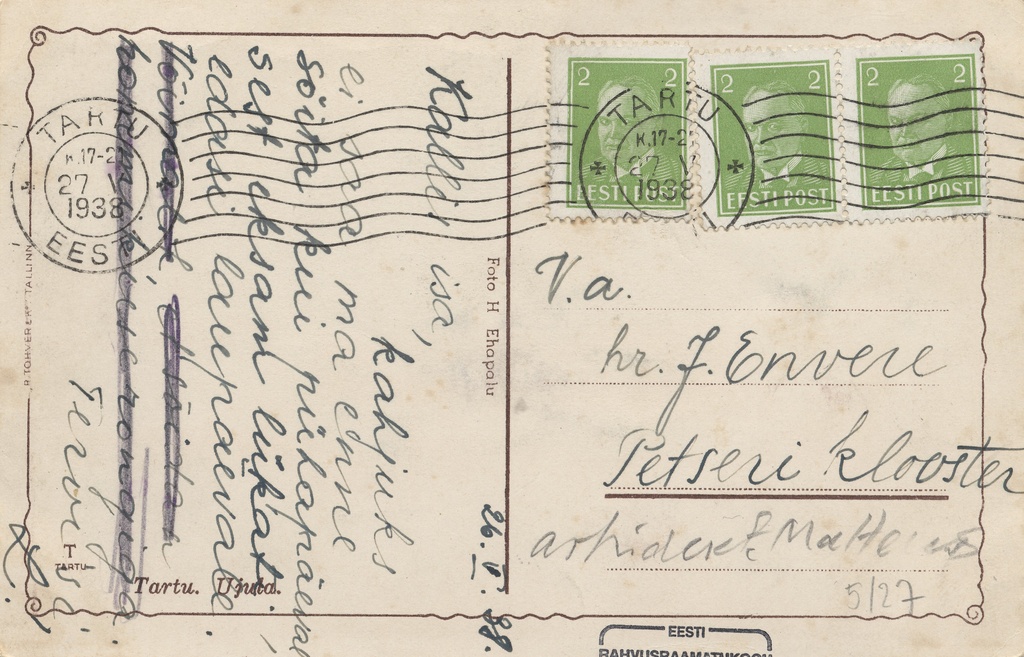 Kallis isa,
kahjuks
ei saa ma enne
sõita kui pühapäeval,
sest eksam lükat.
edasi laupäevale
Tervisi
26. V. 38.
Foto H Ehapalu
Tartu. Ujula.
R. TOHVER & Ko TALLINN
T
TARTU
TARTU
K.17-2
27 V
1938
EESTI
TARTU
K.17-2
27 V
1938
2 2
EESTI POST
2 2
EESTI POST
2 2
EESTI POST
V. a.
hr. J. Envere
Petseri klooster
5/27
EESTI
RAHVUSRAAMATUKOGU